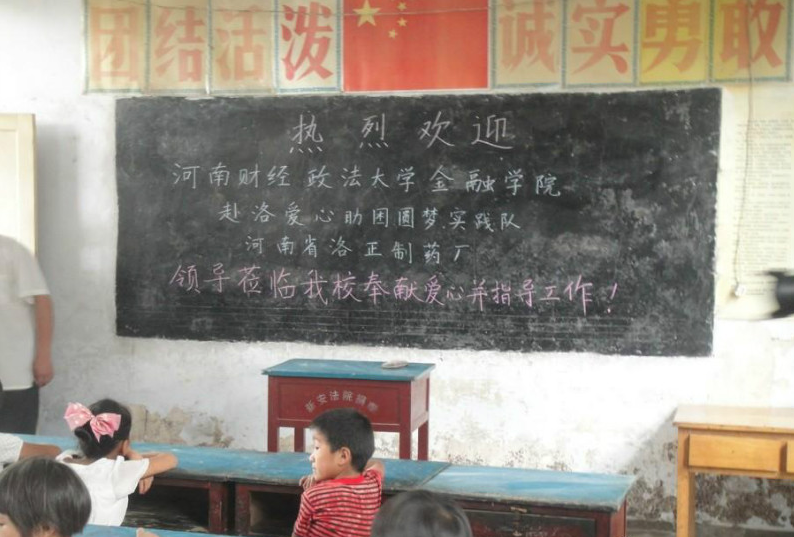 团结活泼 诚实勇敢
热烈欢迎
河南财经政法大学金融学院
赴洛爱心助困圆梦实践队
河南省洛正制药厂
领导莅临我校奉献爱心并指导工作！
新安法院捐赠